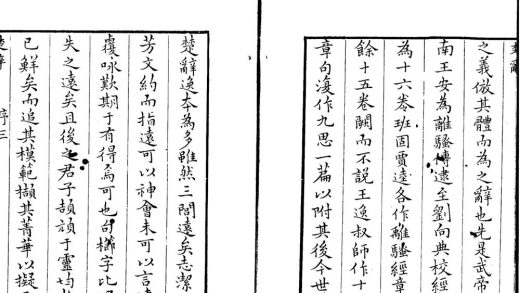 楚辭
之義倣其體而為之辭也先是武帝
南王安為離騷傳逮至劉向典校經
為十六卷班固賈逵各作離騷經章
餘十五卷闕而不說王逸叔師作十
章句復作九思一篇以附其後今世
楚辭逸本為多雖然三閭遠矣志潔
芳文約而指遠可以神會未可以言
覆咏歎期于有得焉可也句櫛字比
失之遠矣且後之君子頡頏于靈均
已鮮矣而追其模範擷其菁華以擬
楚辭 序三